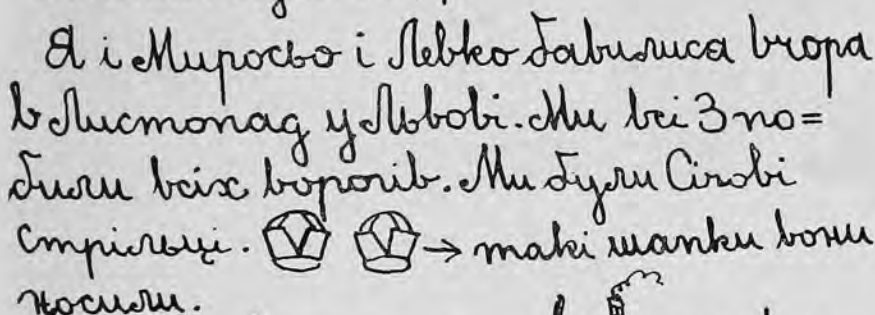 Я і Миросьо і Левко бавилися вчора
в Листопад у Львові. Ми всі 3 по=
били всіх ворогів. Ми були Січові
стрільці. → такі шапки вони
носили.